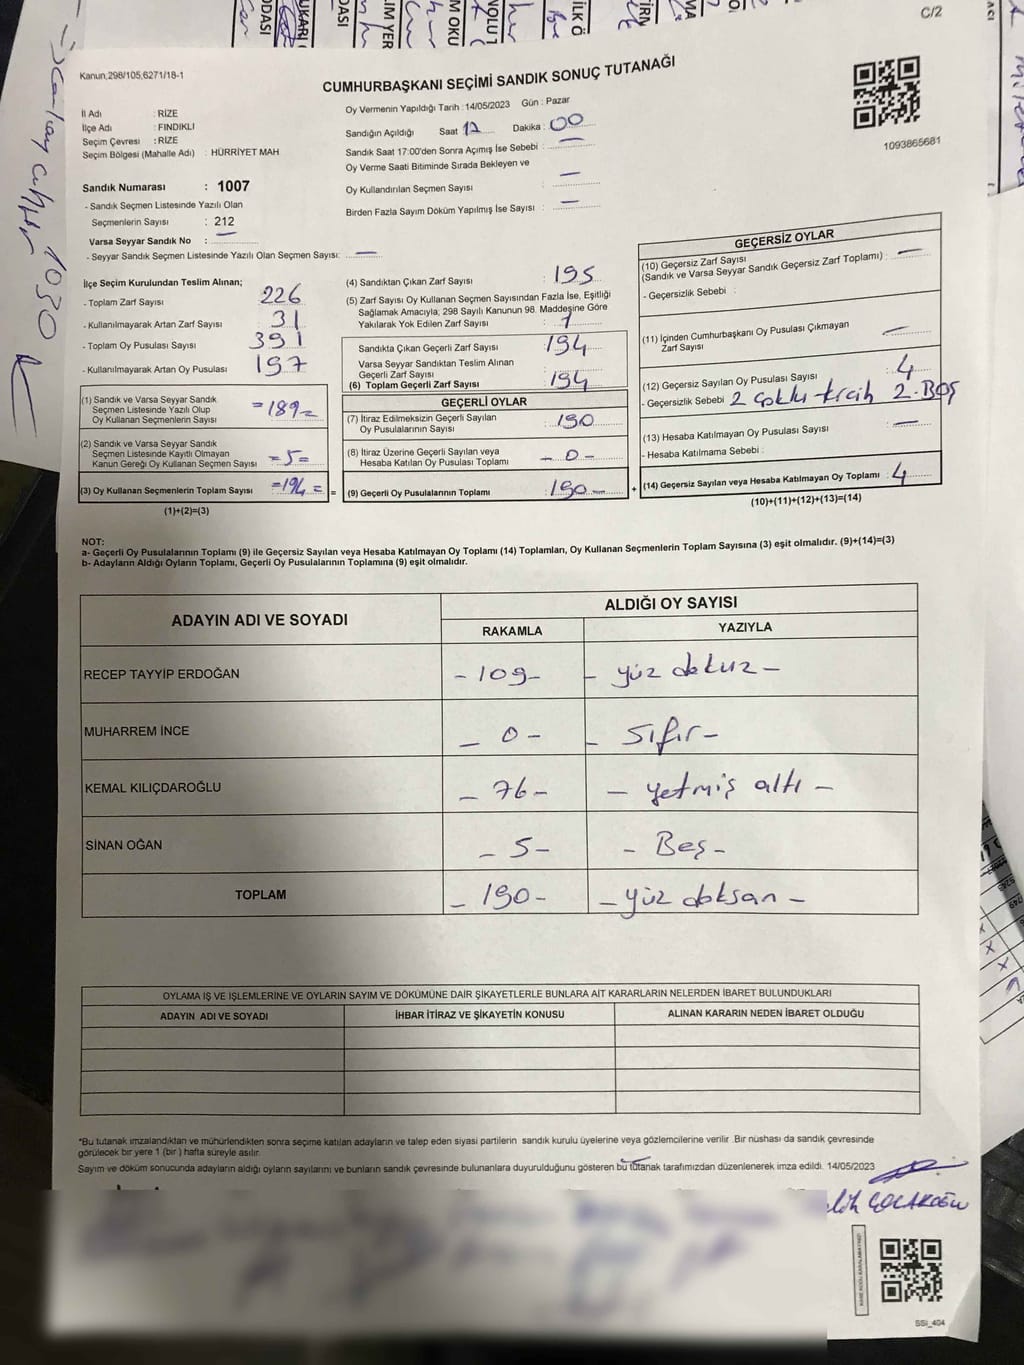 C/2
Kanun,298/105,6271/18-1
CUMHURBAŞKANI SEÇİMİ SANDIK SONUÇ TUTANAĞI
1093865681
İl Adı : RİZE
İlçe Adı : FINDIKLI
Seçim Çevresi : RİZE
Seçim Bölgesi (Mahalle Adı) : HÜRRİYET MAH
Sandık Numarası : 1007
- Sandık Seçmen Listesinde Yazılı Olan
Seçmenlerin Sayısı : 212
Varsa Seyyar Sandık No : —
- Seyyar Sandık Seçmen Listesinde Yazılı Olan Seçmen Sayısı: —
Oy Vermenin Yapıldığı Tarih : 14/05/2023 Gün : Pazar
Sandığın Açıldığı Saat 17 Dakika : 00
Sandık Saat 17:00'den Sonra Açımış İse Sebebi : —
Oy Verme Saati Bitiminde Sırada Bekleyen ve
Oy Kullandırılan Seçmen Sayısı : —
Birden Fazla Sayım Döküm Yapılmış İse Sayısı : —
İlçe Seçim Kurulundan Teslim Alınan;
- Toplam Zarf Sayısı : 226
- Kullanılmayarak Artan Zarf Sayısı : 31
- Toplam Oy Pusulası Sayısı : 391
- Kullanılmayarak Artan Oy Pusulası : 197
(1) Sandık ve Varsa Seyyar Sandık
Seçmen Listesinde Yazılı Olup
Oy Kullanan Seçmenlerin Sayısı = 189 =
(2) Sandık ve Varsa Seyyar Sandık
Seçmen Listesinde Kayıtlı Olmayan
Kanun Gereği Oy Kullanan Seçmen Sayısı = 5 =
(3) Oy Kullanan Seçmenlerin Toplam Sayısı = 194 =
(1)+(2)=(3)
(4) Sandıktan Çıkan Zarf Sayısı : 195
(5) Zarf Sayısı Oy Kullanan Seçmen Sayısından Fazla İse, Eşitliği
Sağlamak Amacıyla; 298 Sayılı Kanunun 98. Maddesine Göre
Yakılarak Yok Edilen Zarf Sayısı : 1
Sandıkta Çıkan Geçerli Zarf Sayısı : 194
Varsa Seyyar Sandıktan Teslim Alınan
Geçerli Zarf Sayısı :
(6) Toplam Geçerli Zarf Sayısı : 194
GEÇERLİ OYLAR
(7) İtiraz Edilmeksizin Geçerli Sayılan
Oy Pusulalarının Sayısı : 190
(8) İtiraz Üzerine Geçerli Sayılan veya
Hesaba Katılan Oy Pusulası Toplamı - 0 -
(9) Geçerli Oy Pusulalarının Toplamı : 190 -
GEÇERSİZ OYLAR
(10) Geçersiz Zarf Sayısı
(Sandık ve Varsa Seyyar Sandık Geçersiz Zarf Toplamı) : —
- Geçersizlik Sebebi :
(11) İçinden Cumhurbaşkanı Oy Pusulası Çıkmayan
Zarf Sayısı : —
(12) Geçersiz Sayılan Oy Pusulası Sayısı : 4
- Geçersizlik Sebebi 2 çoklu tercih 2. Boş
(13) Hesaba Katılmayan Oy Pusulası Sayısı : —
- Hesaba Katılmama Sebebi :
(14) Geçersiz Sayılan veya Hesaba Katılmayan Oy Toplamı : 4
(10)+(11)+(12)+(13)=(14)
NOT:
a- Geçerli Oy Pusulalarının Toplamı (9) ile Geçersiz Sayılan veya Hesaba Katılmayan Oy Toplamı (14) Toplamları, Oy Kullanan Seçmenlerin Toplam Sayısına (3) eşit olmalıdır. (9)+(14)=(3)
b- Adayların Aldığı Oyların Toplamı, Geçerli Oy Pusulalarının Toplamına (9) eşit olmalıdır.
ADAYIN ADI VE SOYADI ALDIĞI OY SAYISI
RAKAMLA YAZIYLA
RECEP TAYYİP ERDOĞAN - 109 - - yüz dokuz -
MUHARREM İNCE - 0 - - sıfır -
KEMAL KILIÇDAROĞLU - 76 - - yetmiş altı -
SİNAN OĞAN - 5 - - Beş -
TOPLAM - 190 - - yüz doksan -
OYLAMA İŞ VE İŞLEMLERİNE VE OYLARIN SAYIM VE DÖKÜMÜNE DAİR ŞİKAYETLERLE BUNLARA AİT KARARLARIN NELERDEN İBARET BULUNDUKLARI
ADAYIN ADI VE SOYADI İHBAR İTİRAZ VE ŞİKAYETİN KONUSU ALINAN KARARIN NEDEN İBARET OLDUĞU
*Bu tutanak imzalandıktan ve mühürlendikten sonra seçime katılan adayların ve talep eden siyasi partilerin sandık kurulu üyelerine veya gözlemcilerine verilir .Bir nüshası da sandık çevresinde
görülecek bir yere 1 (bir ) hafta süreyle asılır.
Sayım ve döküm sonucunda adayların aldığı oyların sayılarını ve bunların sandık çevresinde bulunanlara duyurulduğunu gösteren bu tutanak tarafımızdan düzenlenerek imza edildi. 14/05/2023
SSİ_404